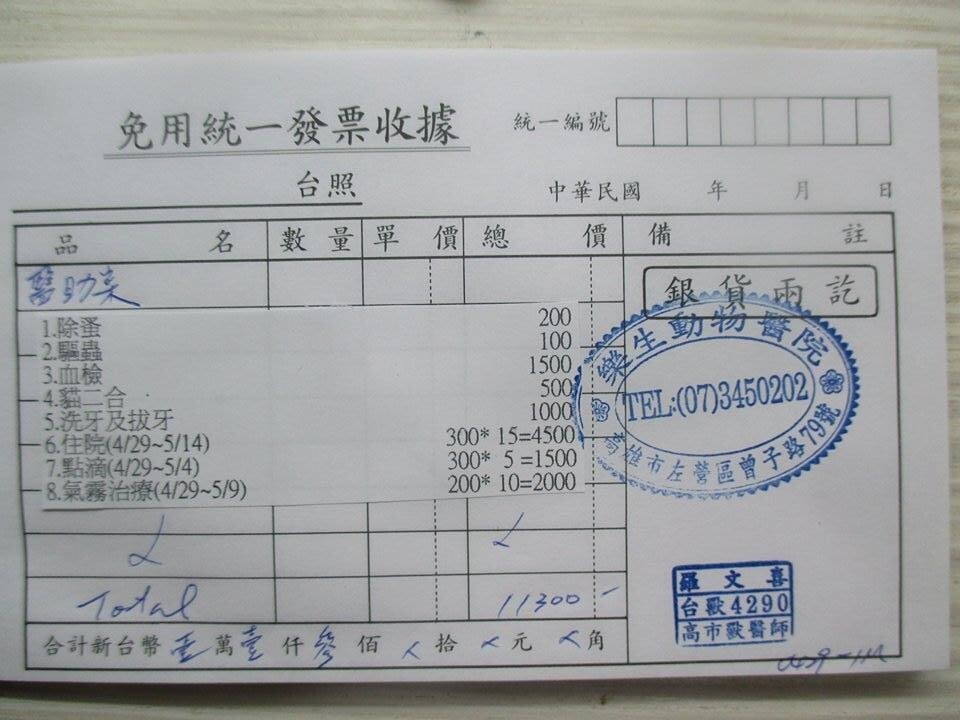 免用統一發票收據
統一編號
台照
中華民國 年 月 日
品名 數量 單價 總價 備註
銀貨兩訖
1.除蚤 200
2.驅蟲 100
3.血檢 1500
4.貓二合 500
5.洗牙及拔牙 1000
6.住院(4/29~5/14) 300* 15=4500
7.點滴(4/29~5/4) 300* 5 =1500
8.氣霧治療(4/29~5/9) 200* 10=2000
樂生動物醫院
TEL:(07)3450202
高雄市左營區曾子路79號
Total 11300-
羅文喜
台獸4290
高市獸醫師
合計新台幣壹萬壹仟參佰 拾 元 角